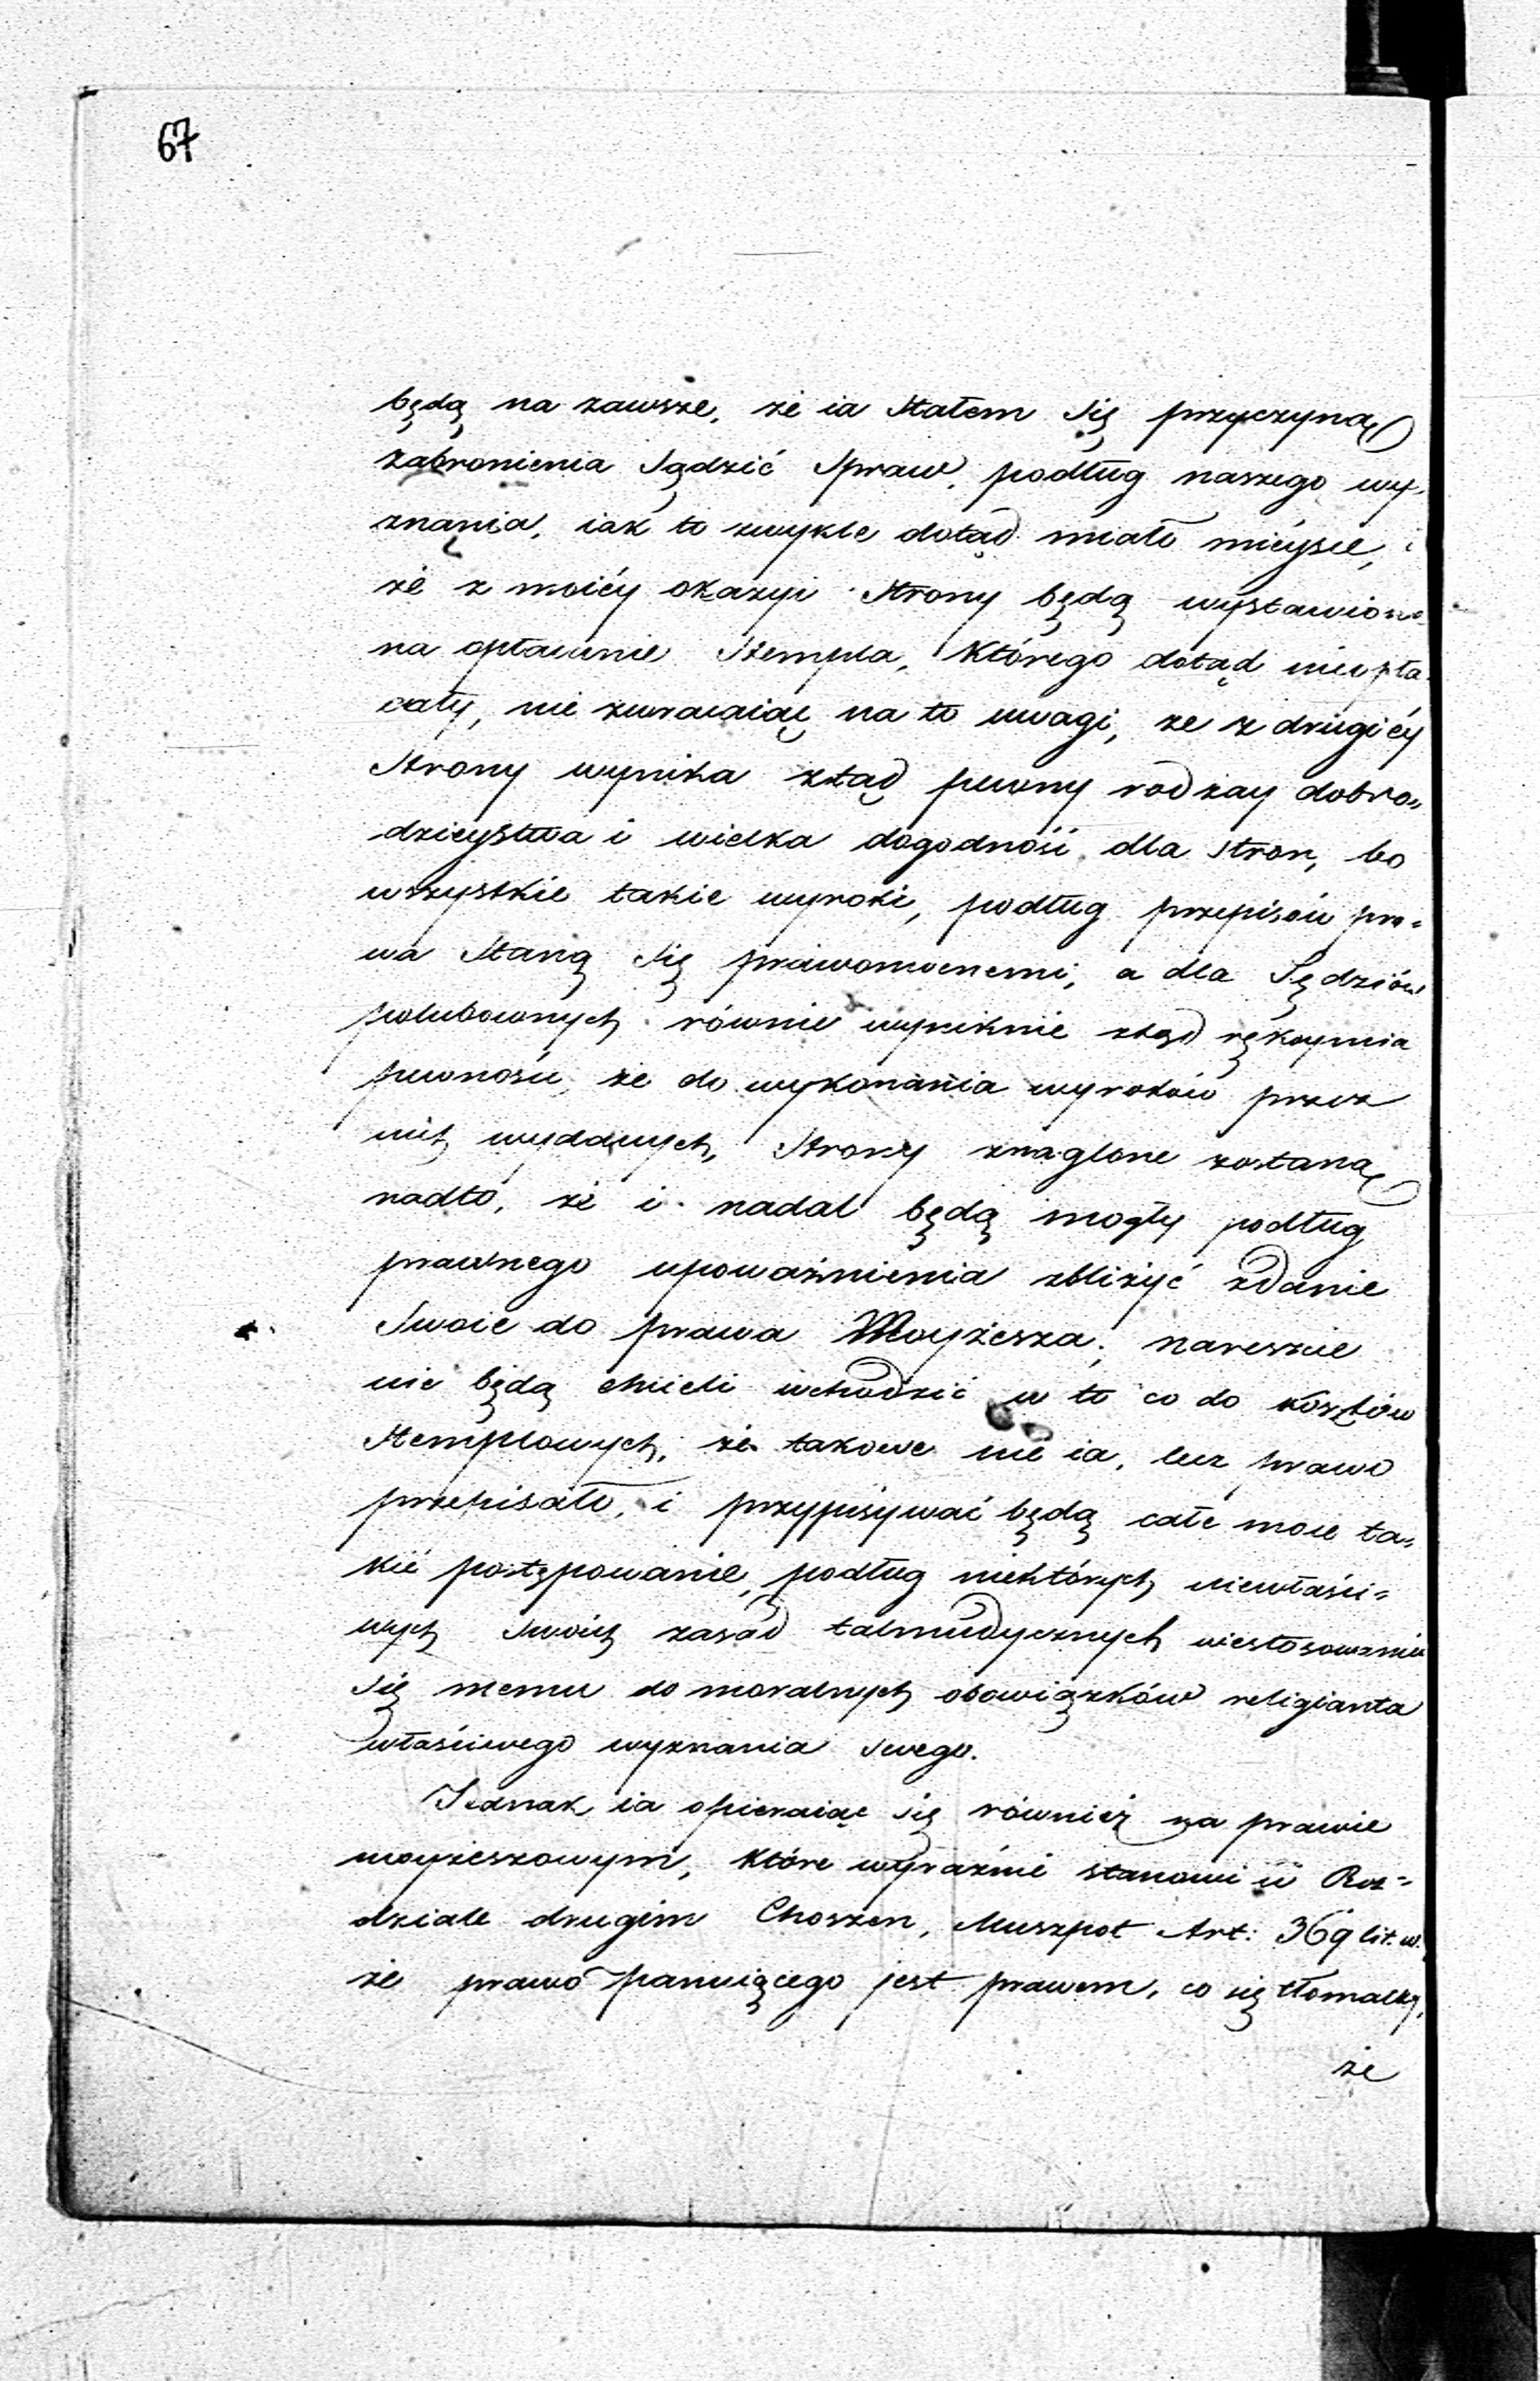 67
będą na zawsze, że ia stałem się przyczyną
zabronienia sądzić Spraw, podług naszego wy-
znania, iak to zwykle dotąd miało mieysce, i
że z moiéy okazyi Strony będą wystawione
na opłacanie Stempla, którego dotąd nieopła-
cały, nie zwracaiąc na to uwagi, że z drugiéy
Strony wynika ztąd pewny rodzay dobro„
dzieystwa i wielka dogodność dla stron, bo
wszystkie takie wyroki, podług przepisów pra-
wa Staną się prawomocnemi, a dla Sędziów
polubownych równie wyniknie ztąd rękoymia
pewności, że do wykonania wyroków przez
nich wydanych, Strony znaglone zostaną
nadto, że i nadal będą mogły podług
prawnego upoważnienia zbliżyć zdanie
Swoie do prawa Moyżesza; nareszcie
nie będą chcieli wchodzić w to co do kosztów
Stemplowych, że takowe nie ia, lecz prawo
przepisało, i przypisywać będą całe moie ta„
kie postępowanie, podług niektórych niewłaści„
wych swoich zasad talmudycznych niestosowaniu
się memu do moralnych obowiązków religianta
właściwego wyznania swego.
Jednak ia opieraiąc się również na prawie
moyżeszowym, które wyraźnie stanowi w Roz-
dziale drugim Choszen, Muszpot Art: 369 lit. w.
że prawo panuiącego jest prawem, co się tłomaczy,
że